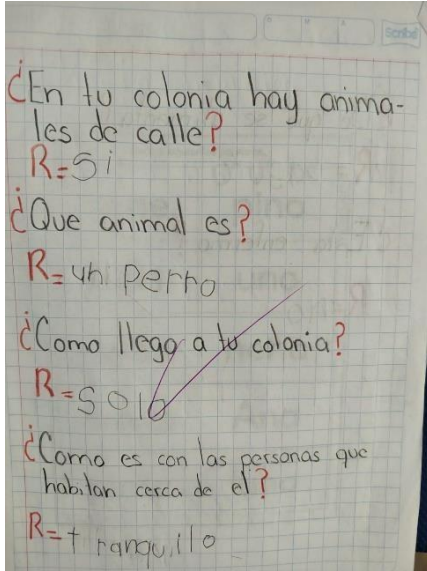 Scribe
¿En tu colonia hay anima-
les de calle?
R=Si
¿Que animal es?
R=un perro
¿Como llego a tu colonia?
R=solo
¿Como es con las personas que
habitan cerca de el?
R=tranquilo